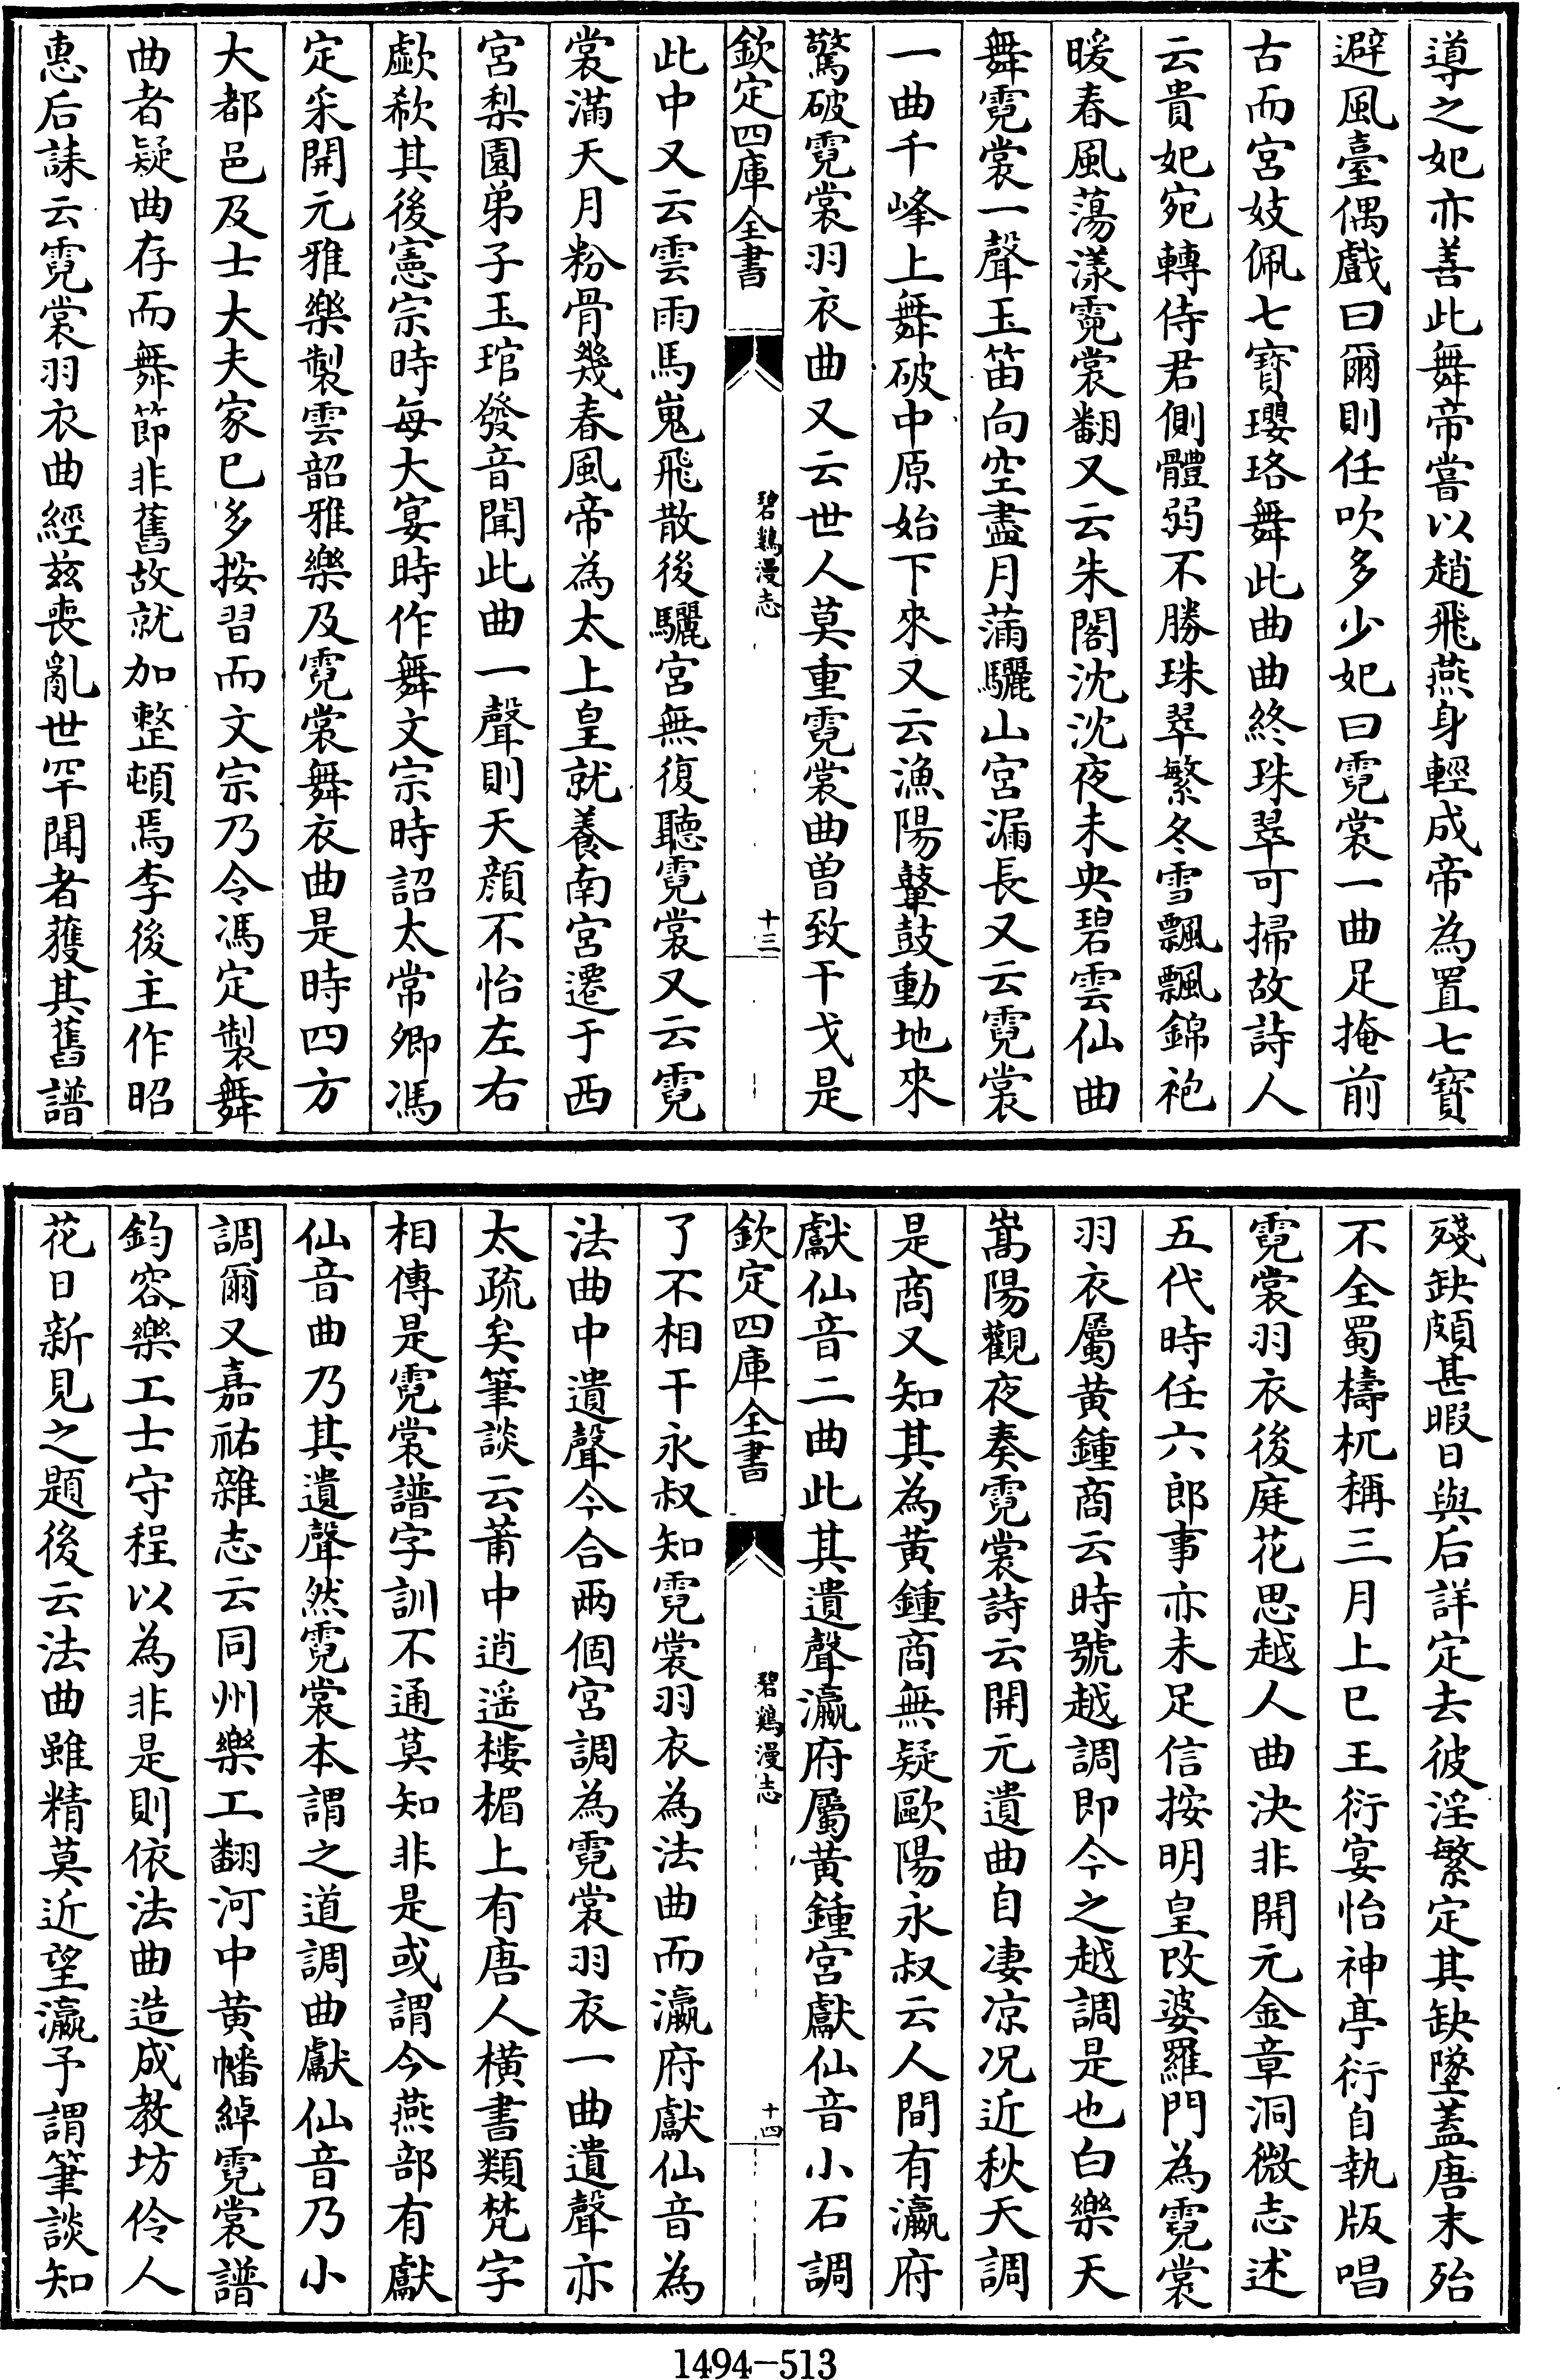 導之妃亦善此舞帝嘗以趙飛燕身輕成帝為置七寳
避風臺偶戲曰爾則任吹多少妃曰霓裳一曲足掩前
古而宮妓佩七寳瓔珞舞此曲曲終珠翠可掃故詩人
云貴妃宛轉侍君側體弱不勝珠翠繁冬雪飄飄錦袍
暖春風蕩漾霓裳翻又云朱閣沈沈夜未央碧雲仙曲
舞霓裳一聲玉笛向空盡月滿驪山宮漏長又云霓裳
一曲千峰上舞破中原始下來又云漁陽鼙鼓動地來
驚破霓裳羽衣曲又云世人莫重霓裳曲曾致干戈是
欽定四庫全書 碧鷄漫志 十三
此中又云雲雨馬嵬飛散後驪宮無復聽霓裳又云霓
裳滿天月粉骨幾春風帝為太上皇就養南宮遷于西
宮梨園弟子玉琯發音聞此曲一聲則天顔不怡左右
歔欷其後憲宗時每大宴時作舞文宗時詔太常卿馮
定采開元雅樂製雲韶雅樂及霓裳舞衣曲是時四方
大都邑及士大夫家已多按習而文宗乃令馮定製舞
曲者疑曲存而舞節非舊故就加整頓焉李後主作昭
惠后誄云霓裳羽衣曲經兹喪亂世罕聞者獲其舊譜
殘缺頗甚暇日與后詳定去彼淫繁定其缺墜蓋唐末殆
不全蜀檮杌稱三月上巳王衍宴怡神亭衍自執版唱
霓裳羽衣後庭花思越人曲決非開元金章洞微志述
五代時任六郎事亦未足信按明皇改婆羅門為霓裳
羽衣屬黄鍾商云時號越調即今之越調是也白樂天
嵩陽觀夜奏霓裳詩云開元遺曲自凄凉况近秋天調
是商又知其為黄鍾商無疑歐陽永叔云人間有瀛府
獻仙音二曲此其遺聲瀛府屬黄鍾宮獻仙音小石調
欽定四庫全書 碧鷄漫志 十四
了不相干永叔知霓裳羽衣為法曲而瀛府獻仙音為
法曲中遺聲今合兩個宮調為霓裳羽衣一曲遺聲亦
太疏矣筆談云莆中逍遥樓楣上有唐人橫書類梵字
相傳是霓裳譜字訓不通莫知非是或謂今燕部有獻
仙音曲乃其遺聲然霓裳本謂之道調曲獻仙音乃小
調爾又嘉祐雜志云同州樂工翻河中黄幡綽霓裳譜
鈞容樂工士守程以為非是則依法曲造成教坊伶人
花日新見之題後云法曲雖精莫近望瀛予謂筆談知
1494-513